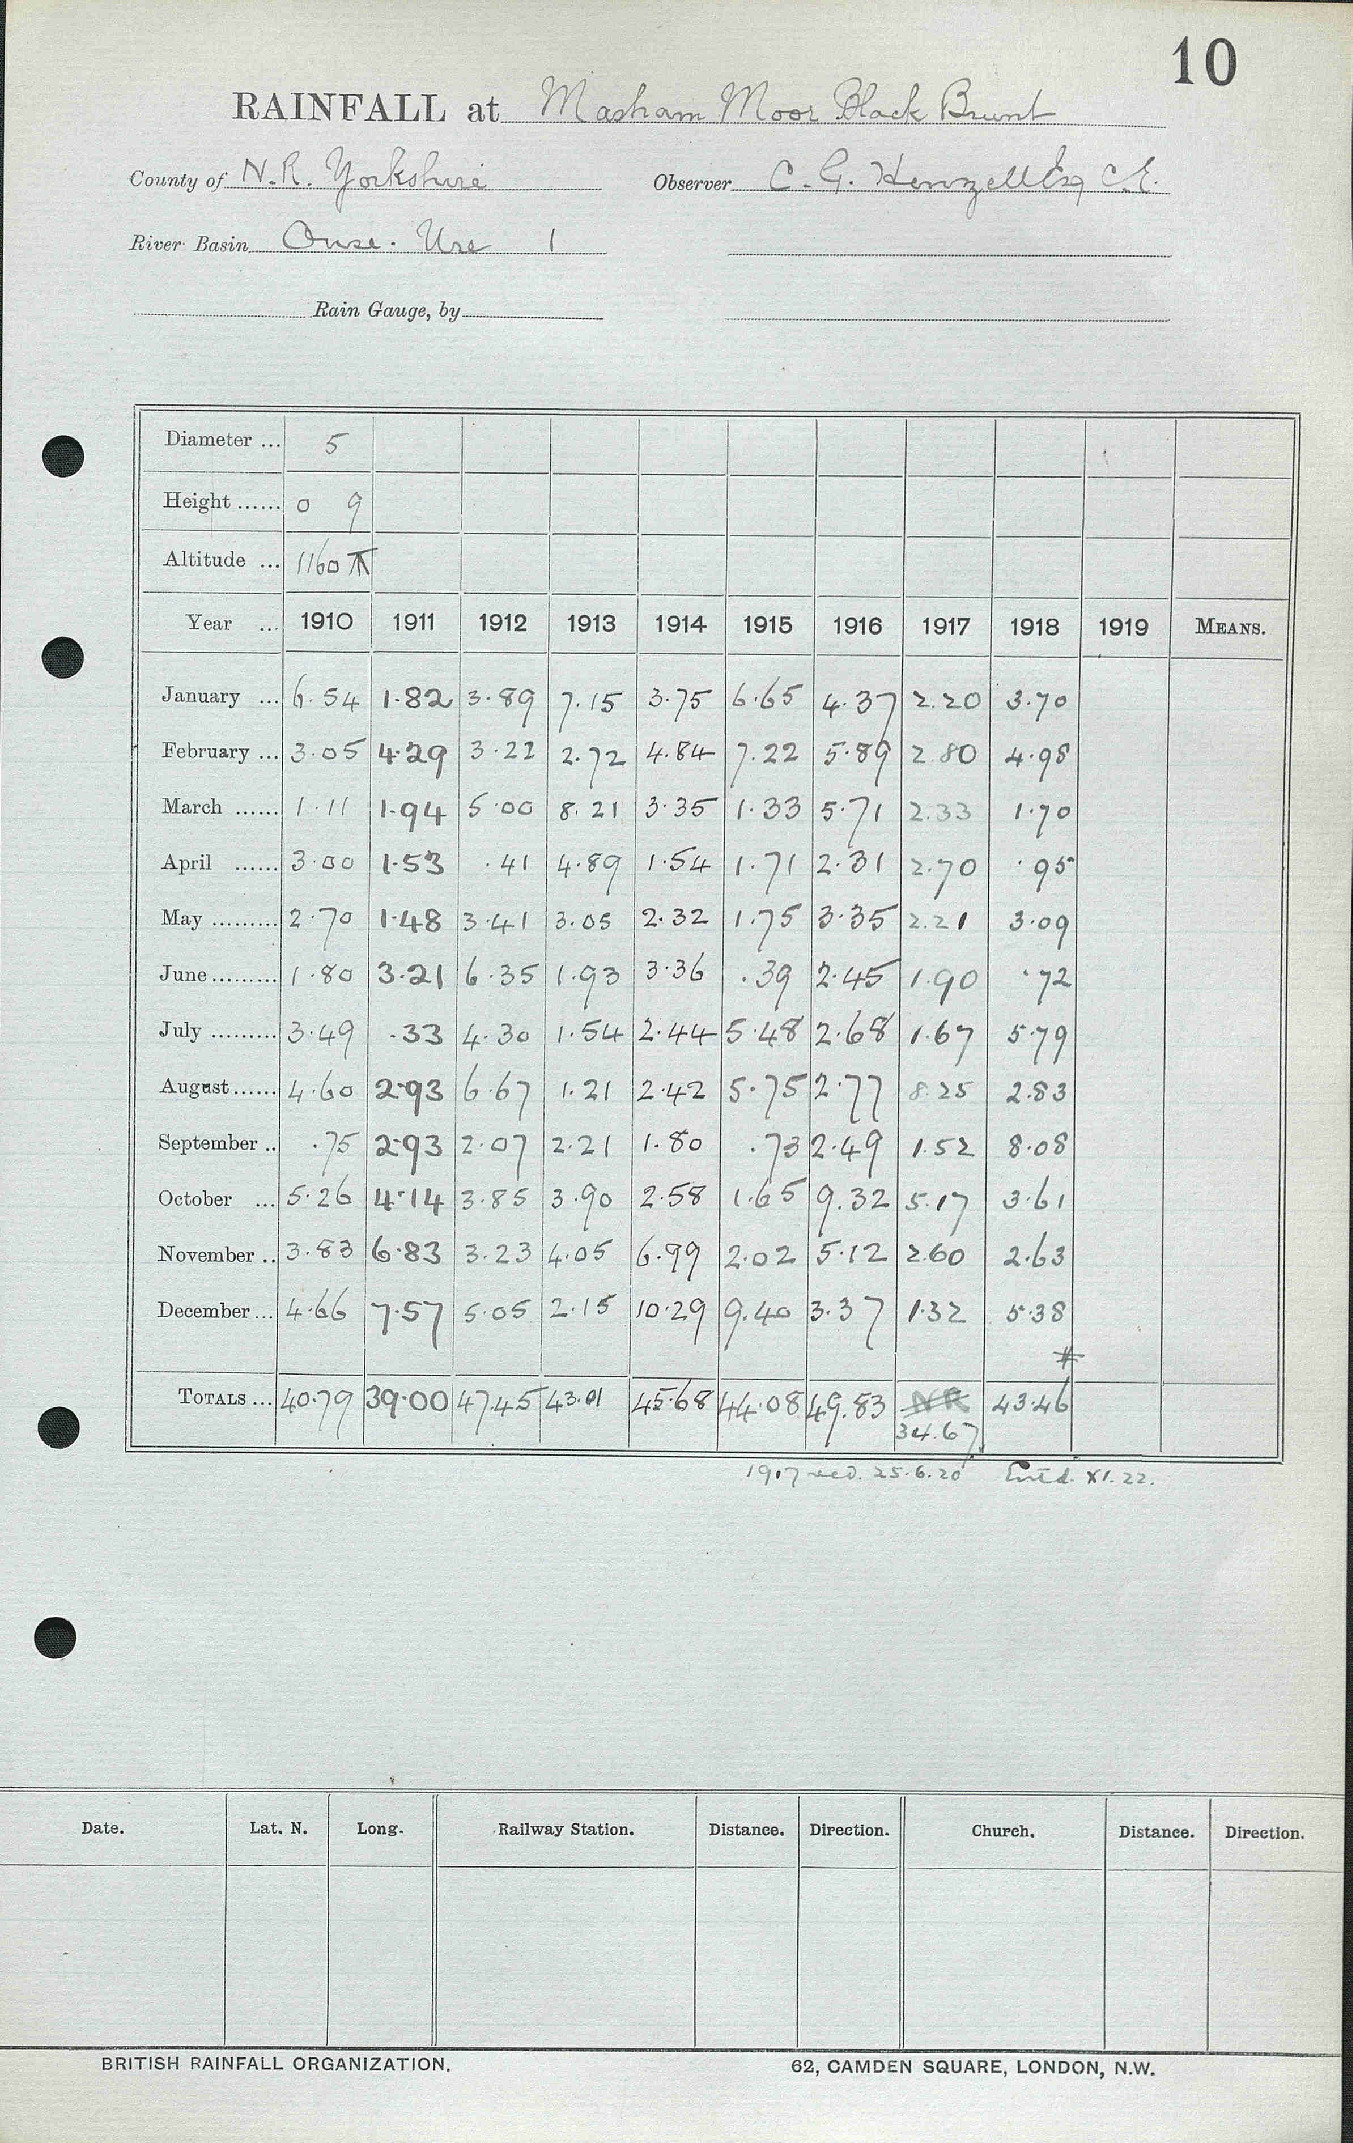 10
RAINFALL at Masham Moor Black Brunt
County of N.R. Yorkshire Observer C. G. Henzell Esq C.E.
River Basin Ouse. Ure 1
Rain Gauge, by
Diameter ... 5
Height ...... 0 9
Altitude ... 1160
Year ... 1910 1911 1912 1913 1914 1915 1916 1917 1918 1919 MEANS.
January ... 6.54 1.82 3.89 7.15 3.75 6.65 4.37 2.20 3.70
February ... 3.05 4.29 3.22 2.72 4.84 7.22 5.89 2.80 4.98
March ...... 1.11 1.94 5.00 8.21 3.35 1.33 5.71 2.33 1.70
April ...... 3.00 1.53 .41 4.89 1.54 1.71 2.31 2.70 .95
May ......... 2.70 1.48 3.41 3.05 2.32 1.75 3.35 2.21 3.09
June ......... 1.80 3.21 6.35 1.93 3.36 .39 2.45 1.90 .72
July ......... 3.49 .33 4.30 1.54 2.44 5.48 2.68 1.67 5.79
August ...... 4.60 2.93 6.67 1.21 2.42 5.75 2.77 8.25 2.83
September .. .75 2.93 2.07 2.21 1.80 .73 2.49 1.52 8.08
October ... 5.26 4.14 3.85 3.90 2.58 1.65 9.32 5.17 3.61
November .. 3.83 6.83 3.23 4.05 6.99 2.02 5.12 2.60 2.63
December ... 4.66 7.57 5.05 2.15 10.29 9.40 3.37 1.32 5.38
#
TOTALS ... 40.79 39.00 47.45 43.01 45.68 44.08 49.83 NR 43.46
34.67
1917 recd. 25.6.20 Entd. XI.22.
Date. Lat. N. Long. Railway Station. Distance. Direction. Church. Distance. Direction.
BRITISH RAINFALL ORGANIZATION. 62, CAMDEN SQUARE, LONDON, N.W.